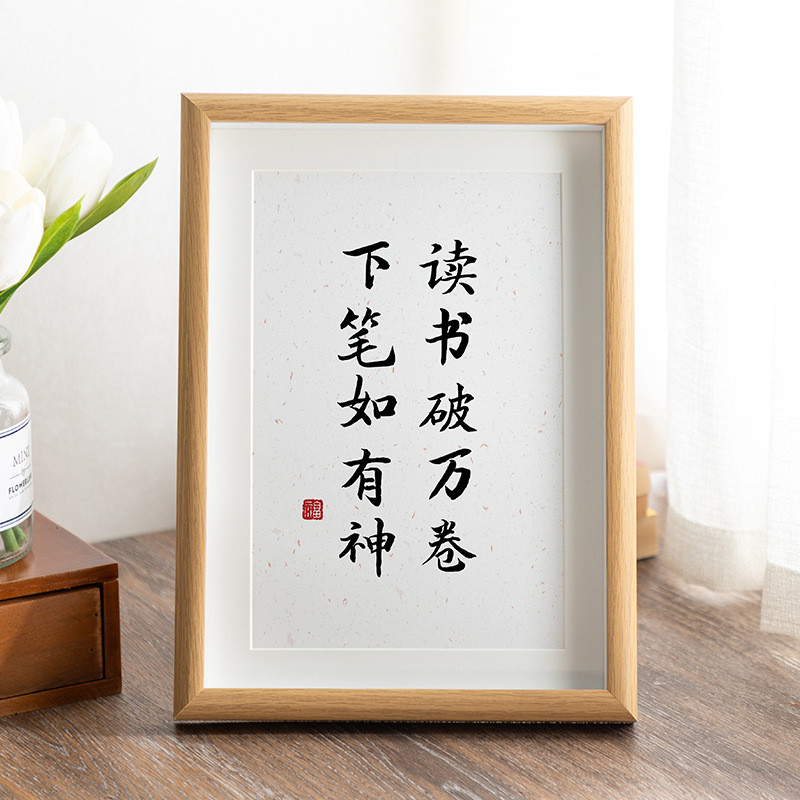 读书破万卷
下笔如有神
福
MINI
FLOWER